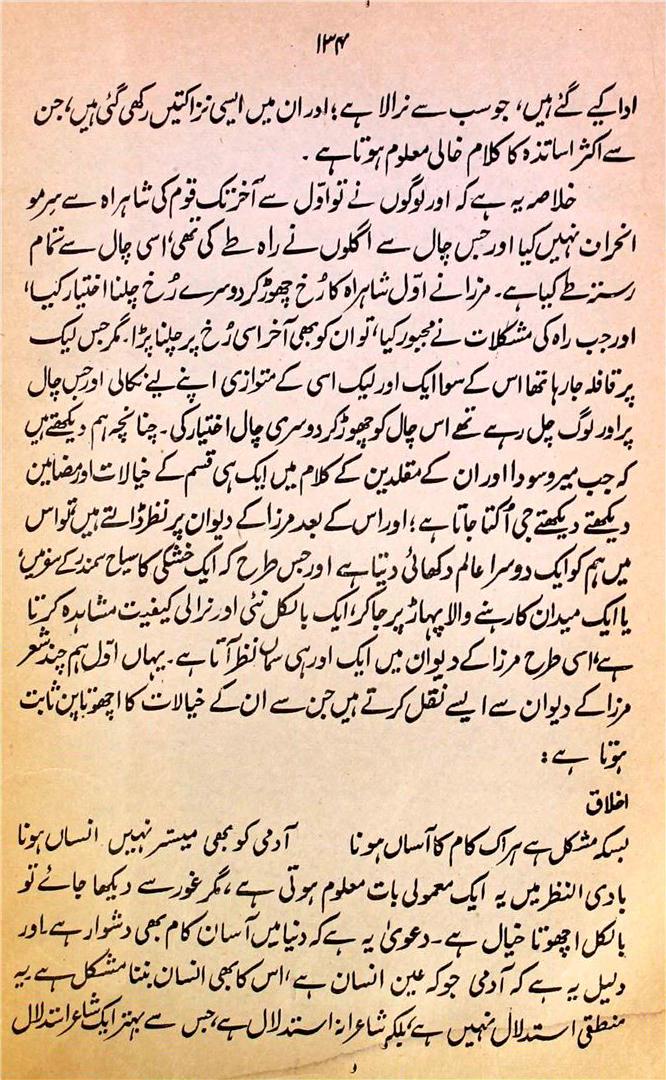 ۱۳۴
ادا کیے گئے ہیں، جو سب سے نرالا ہے؛ اور ان میں ایسی نزاکتیں رکھی گئی ہیں، جن
سے اکثر اساتذہ کا کلام خالی معلوم ہوتا ہے ۔
خلاصہ یہ ہے کہ اور لوگوں نے تو اوّل سے آخر تک قوم کی شاہراہ سے سرِمو
انحراف نہیں کیا اور جس چال سے اگلوں نے راہ طے کی تھی، اسی چال سے تمام
رستہ طے کیا ہے۔ مرزا نے اوّل شاہراہ کا رُخ چھوڑ کر دوسرے رُخ چلنا اختیار کیا،
اور جب راہ کی مشکلات نے مجبور کیا، تو ان کو بھی آخر اسی رُخ پر چلنا پڑا۔ مگر جس لیک
پر قافلہ جا رہا تھا اس کے سوا ایک اور لیک اسی کے متوازی اپنے لیے نکالی اور جس چال
پر اور لوگ چل رہے تھے اس چال کو چھوڑ کر دوسری چال اختیار کی۔ چنانچہ ہم دیکھتے ہیں
کہ جب میر و سودا اور ان کے مقلدین کے کلام میں ایک ہی قسم کے خیالات اور مضامین
دیکھتے دیکھتے جی اُکتا جاتا ہے؛ اور اس کے بعد مرزا کے دیوان پر نظر ڈالتے ہیں، تو اس
میں ہم کو ایک دوسرا عالم دکھائی دیتا ہے اور جس طرح کہ ایک خشکی کا سیاح سمندر کے سفر میں،
یا ایک میدان کا رہنے والا پہاڑ پر جا کر، ایک بالکل نئی اور نرالی کیفیت مشاہدہ کرتا
ہے، اسی طرح مرزا کے دیوان میں ایک اور ہی سماں نظر آتا ہے۔ یہاں اوّل ہم چند شعر
مرزا کے دیوان سے ایسے نقل کرتے ہیں جن سے ان کے خیالات کا اچھوتا پن ثابت
ہوتا ہے:
اخلاق
بسکہ مشکل ہے ہر اک کام کا آساں ہونا آدمی کو بھی میسّر نہیں انساں ہونا
بادی النظر میں یہ ایک معمولی بات معلوم ہوتی ہے، مگر غور سے دیکھا جائے تو
بالکل اچھوتا خیال ہے۔ دعویٰ یہ ہے کہ دنیا میں آسان کام بھی دشوار ہے۔ اور
دلیل یہ ہے کہ آدمی جو کہ عین انسان ہے، اس کا بھی انسان بننا مشکل ہے۔ یہ
منطقی استدلال نہیں ہے، بلکہ شاعرانہ استدلال ہے، جس سے بہتر ایک شاعر استدلال